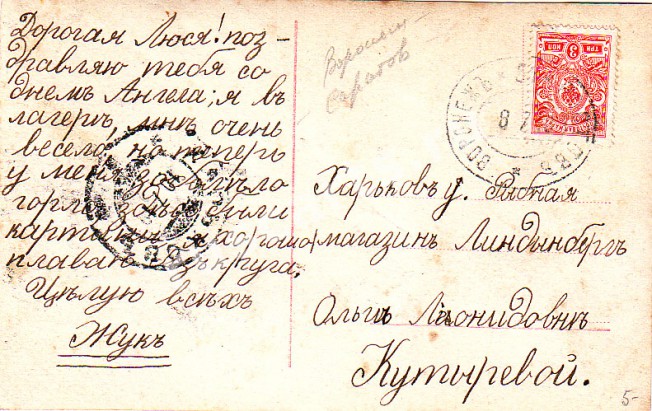 Дорогая Люся! поз-
дравляю тебя со
днемъ Ангела; я въ
лагерѣ, мнѣ очень
весело, но теперь
у меня
горло
карто хорошо
плаваю безъ круга,
Цѣлую всѣхъ
Жукъ
Саратов
ВОРОНЕЖЪ
3 КОП
ТРИ
Харьковъ у. Рыбная
магазинъ Линдинбергъ
Ольгѣ Леонидовнѣ
Кутыревой.
5-